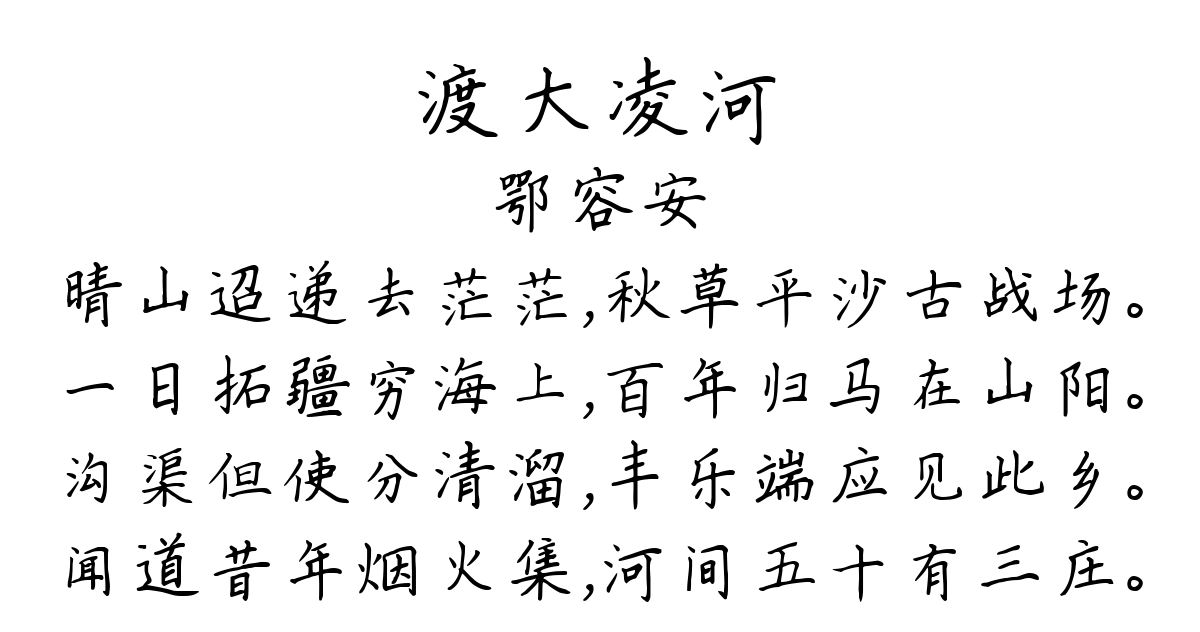 渡大凌河
鄂容安
晴山迢递去茫茫,秋草平沙古战场。
一日拓疆穷海上,百年归马在山阳。
沟渠但使分清溜,丰乐端应见此乡。
闻道昔年烟火集,河间五十有三庄。